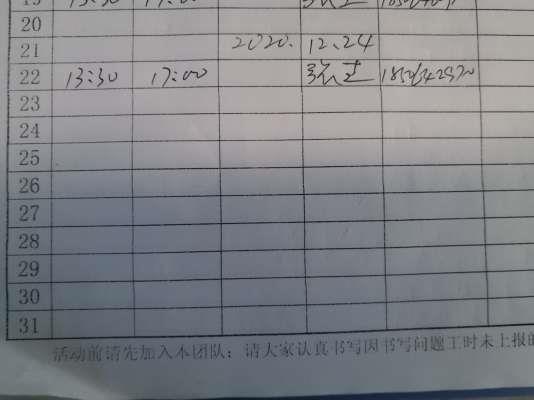 19 13:30 17:00
20
21 2020. 12.24
22 13:30 17:00
23
24
25
26
27
28
29
30
31
活动前请先加入本团队:请大家认真书写因书写问题工时未上报的